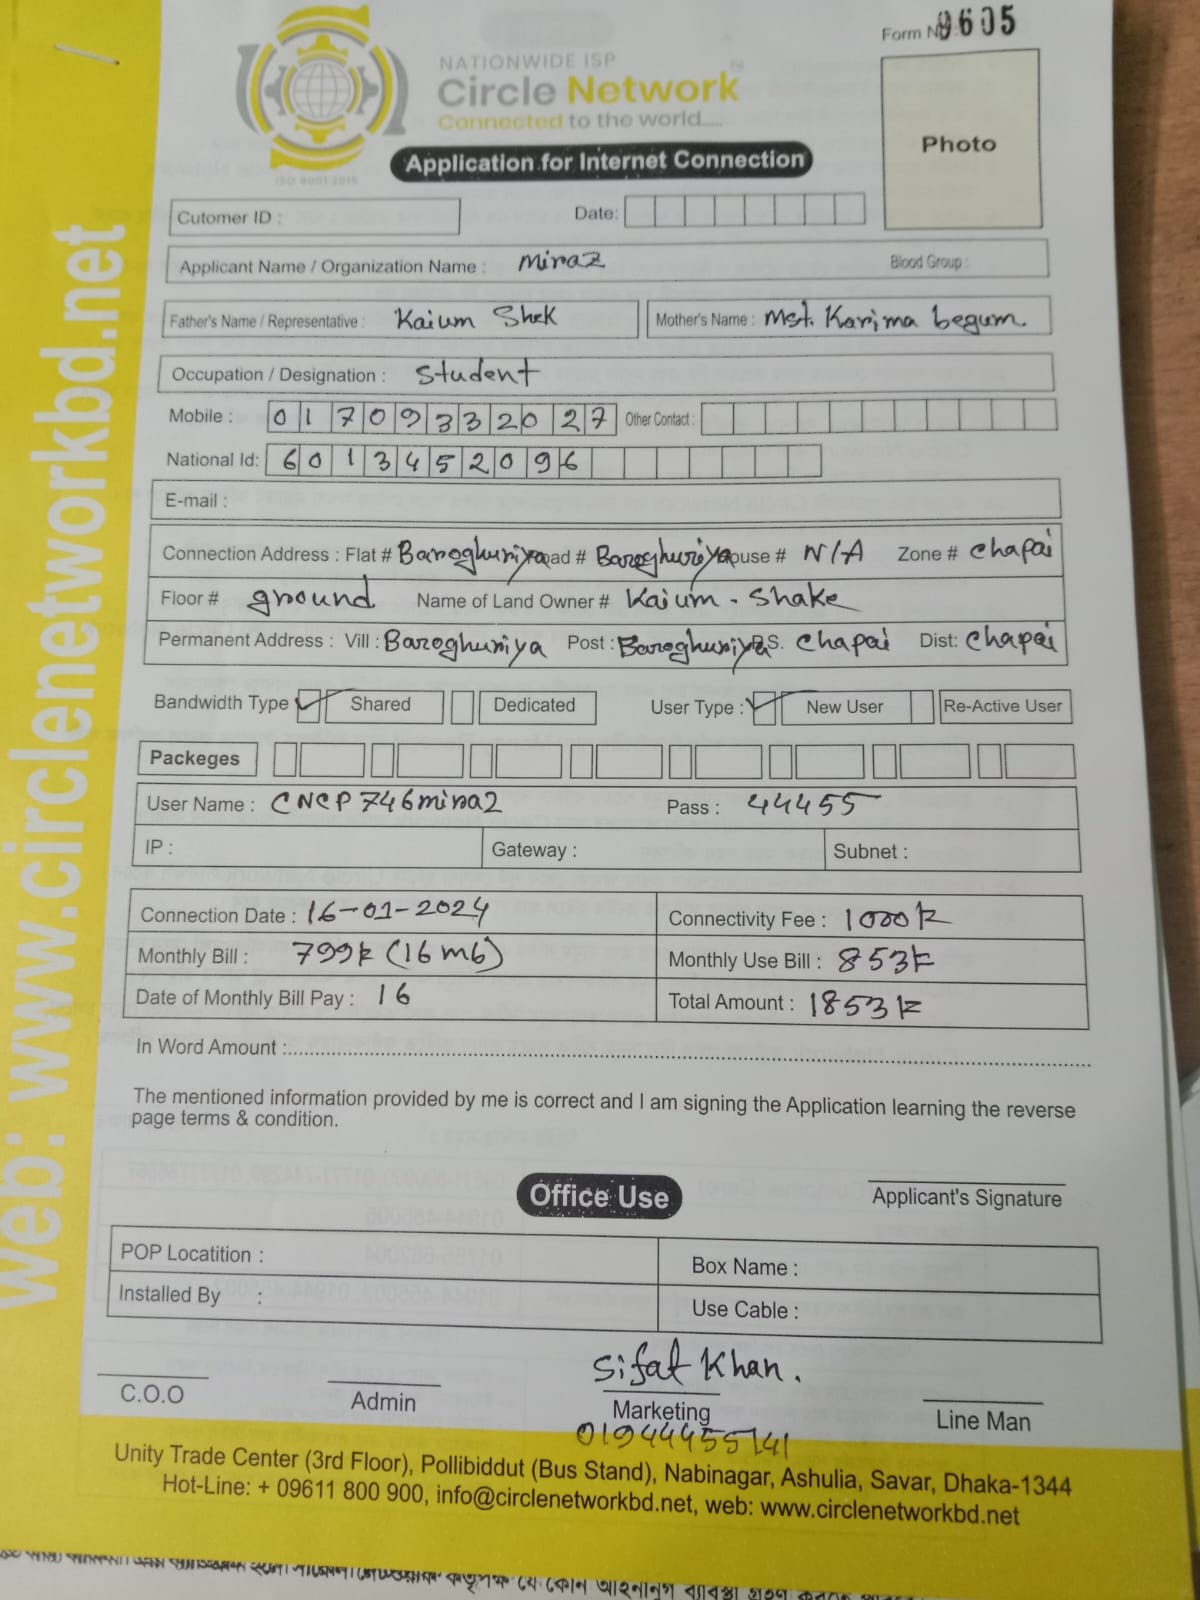 Form No 9605
NATIONWIDE ISP
Circle Network
Connected to the world.....
ISO 9001:2015
Photo
Application for Internet Connection
Cutomer ID :
Date:
Applicant Name / Organization Name : miraz
Blood Group :
Father's Name / Representative : Kaium Shek
Mother's Name : Mst. Karima begum.
Occupation / Designation : Student
Mobile : 01709332027 Other Contact :
National Id: 6013452096
E-mail :
Connection Address : Flat # Baroghuriya Road # Baroghuriya House # N/A Zone # Chapai
Floor # ground Name of Land Owner # Kaium - Shake
Permanent Address : Vill : Baroghuriya Post : Baroghuriya P.S. Chapai Dist: Chapai
Bandwidth Type Shared Dedicated User Type : New User Re-Active User
Packeges
User Name : CNCP746miraz Pass : 44455
IP : Gateway : Subnet :
Connection Date : 16-01-2024 Connectivity Fee : 1000k
Monthly Bill : 799k (16 mb) Monthly Use Bill : 853k
Date of Monthly Bill Pay : 16 Total Amount : 1853k
In Word Amount :
The mentioned information provided by me is correct and I am signing the Application learning the reverse
page terms & condition.
Applicant's Signature
Office Use
POP Locatition : Box Name :
Installed By : Use Cable :
Sifat Khan.
C.O.O Admin Marketing Line Man
01944455141
Unity Trade Center (3rd Floor), Pollibiddut (Bus Stand), Nabinagar, Ashulia, Savar, Dhaka-1344
Hot-Line: + 09611 800 900, info@circlenetworkbd.net, web: www.circlenetworkbd.net
web: www.circlenetworkbd.net